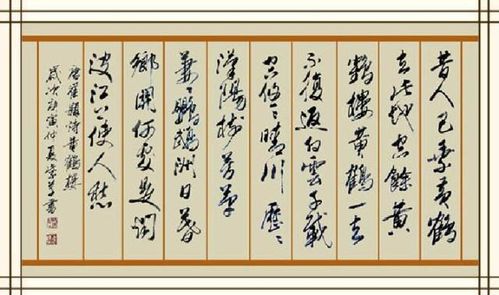 昔人已乘黄鶴
去此地空餘黄
鶴樓黄鶴一去
不復返白雲千載
空悠々晴川歷々
漢陽樹芳草
萋々鸚鵡洲日暮
鄉關何處是烟
波江上使人愁
唐崔顥詩黄鶴樓
歲次庚寅仲夏書